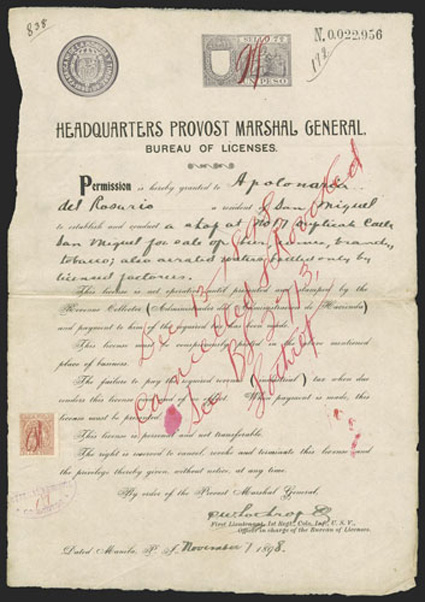 828
N. 0.022.956
SELLO 7º
172
UN PESO
HEADQUARTERS PROVOST MARSHAL GENERAL.
BUREAU OF LICENSES.
Permission is hereby granted to Apolonaria
del Rosario a resident of San Miguel
to establish and conduct a shop at No 17 duplicate Calle
San Miguel for sale of beer, wines, brandy,
tobacco; also aerated waters bottled only by
licensed factories.
This license is not operative until presented and stamped by the
Revenue Collector (Administrador de Administracion de Hacienda)
and payment to him of the required tax has been made.
This license must be conspicuously posted in the above mentioned
place of business.
The failure to pay the required revenue (industrial) tax when due
renders this license null and of no effect. When payment is made, this
license must be presented.
This license is personal and not transferable.
The right is reserved to cancel, revoke and terminate this license and
the privilege thereby given, without notice, at any time.
By order of the Provost Marshal General,
First Lieutenant, 1st Regt., Colo. Inf., U. S. V.,
Officer in charge of the Bureau of Licenses.
Dated Manila, P. I. November 7 1898.
Dec 13-1898
Cancelled & Revoked
See B/ 2713,
Lothrop